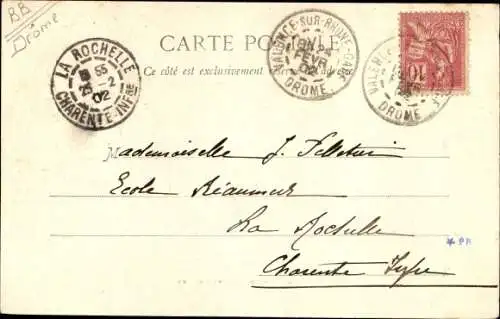 BB
Drôme
CARTE POSTALE
Ce côté est exclusivement réservé à l'adresse
LA ROCHELLE
25 -2
02
CHARENTE-INFRE
VALENCE-SUR-RHONE-GARE
FEVR
02
DROME
VALENCE
DROME
10
M
Mademoiselle J. Pelletier
Ecole Réaumur
La Rochelle
Charente Infre
* PR